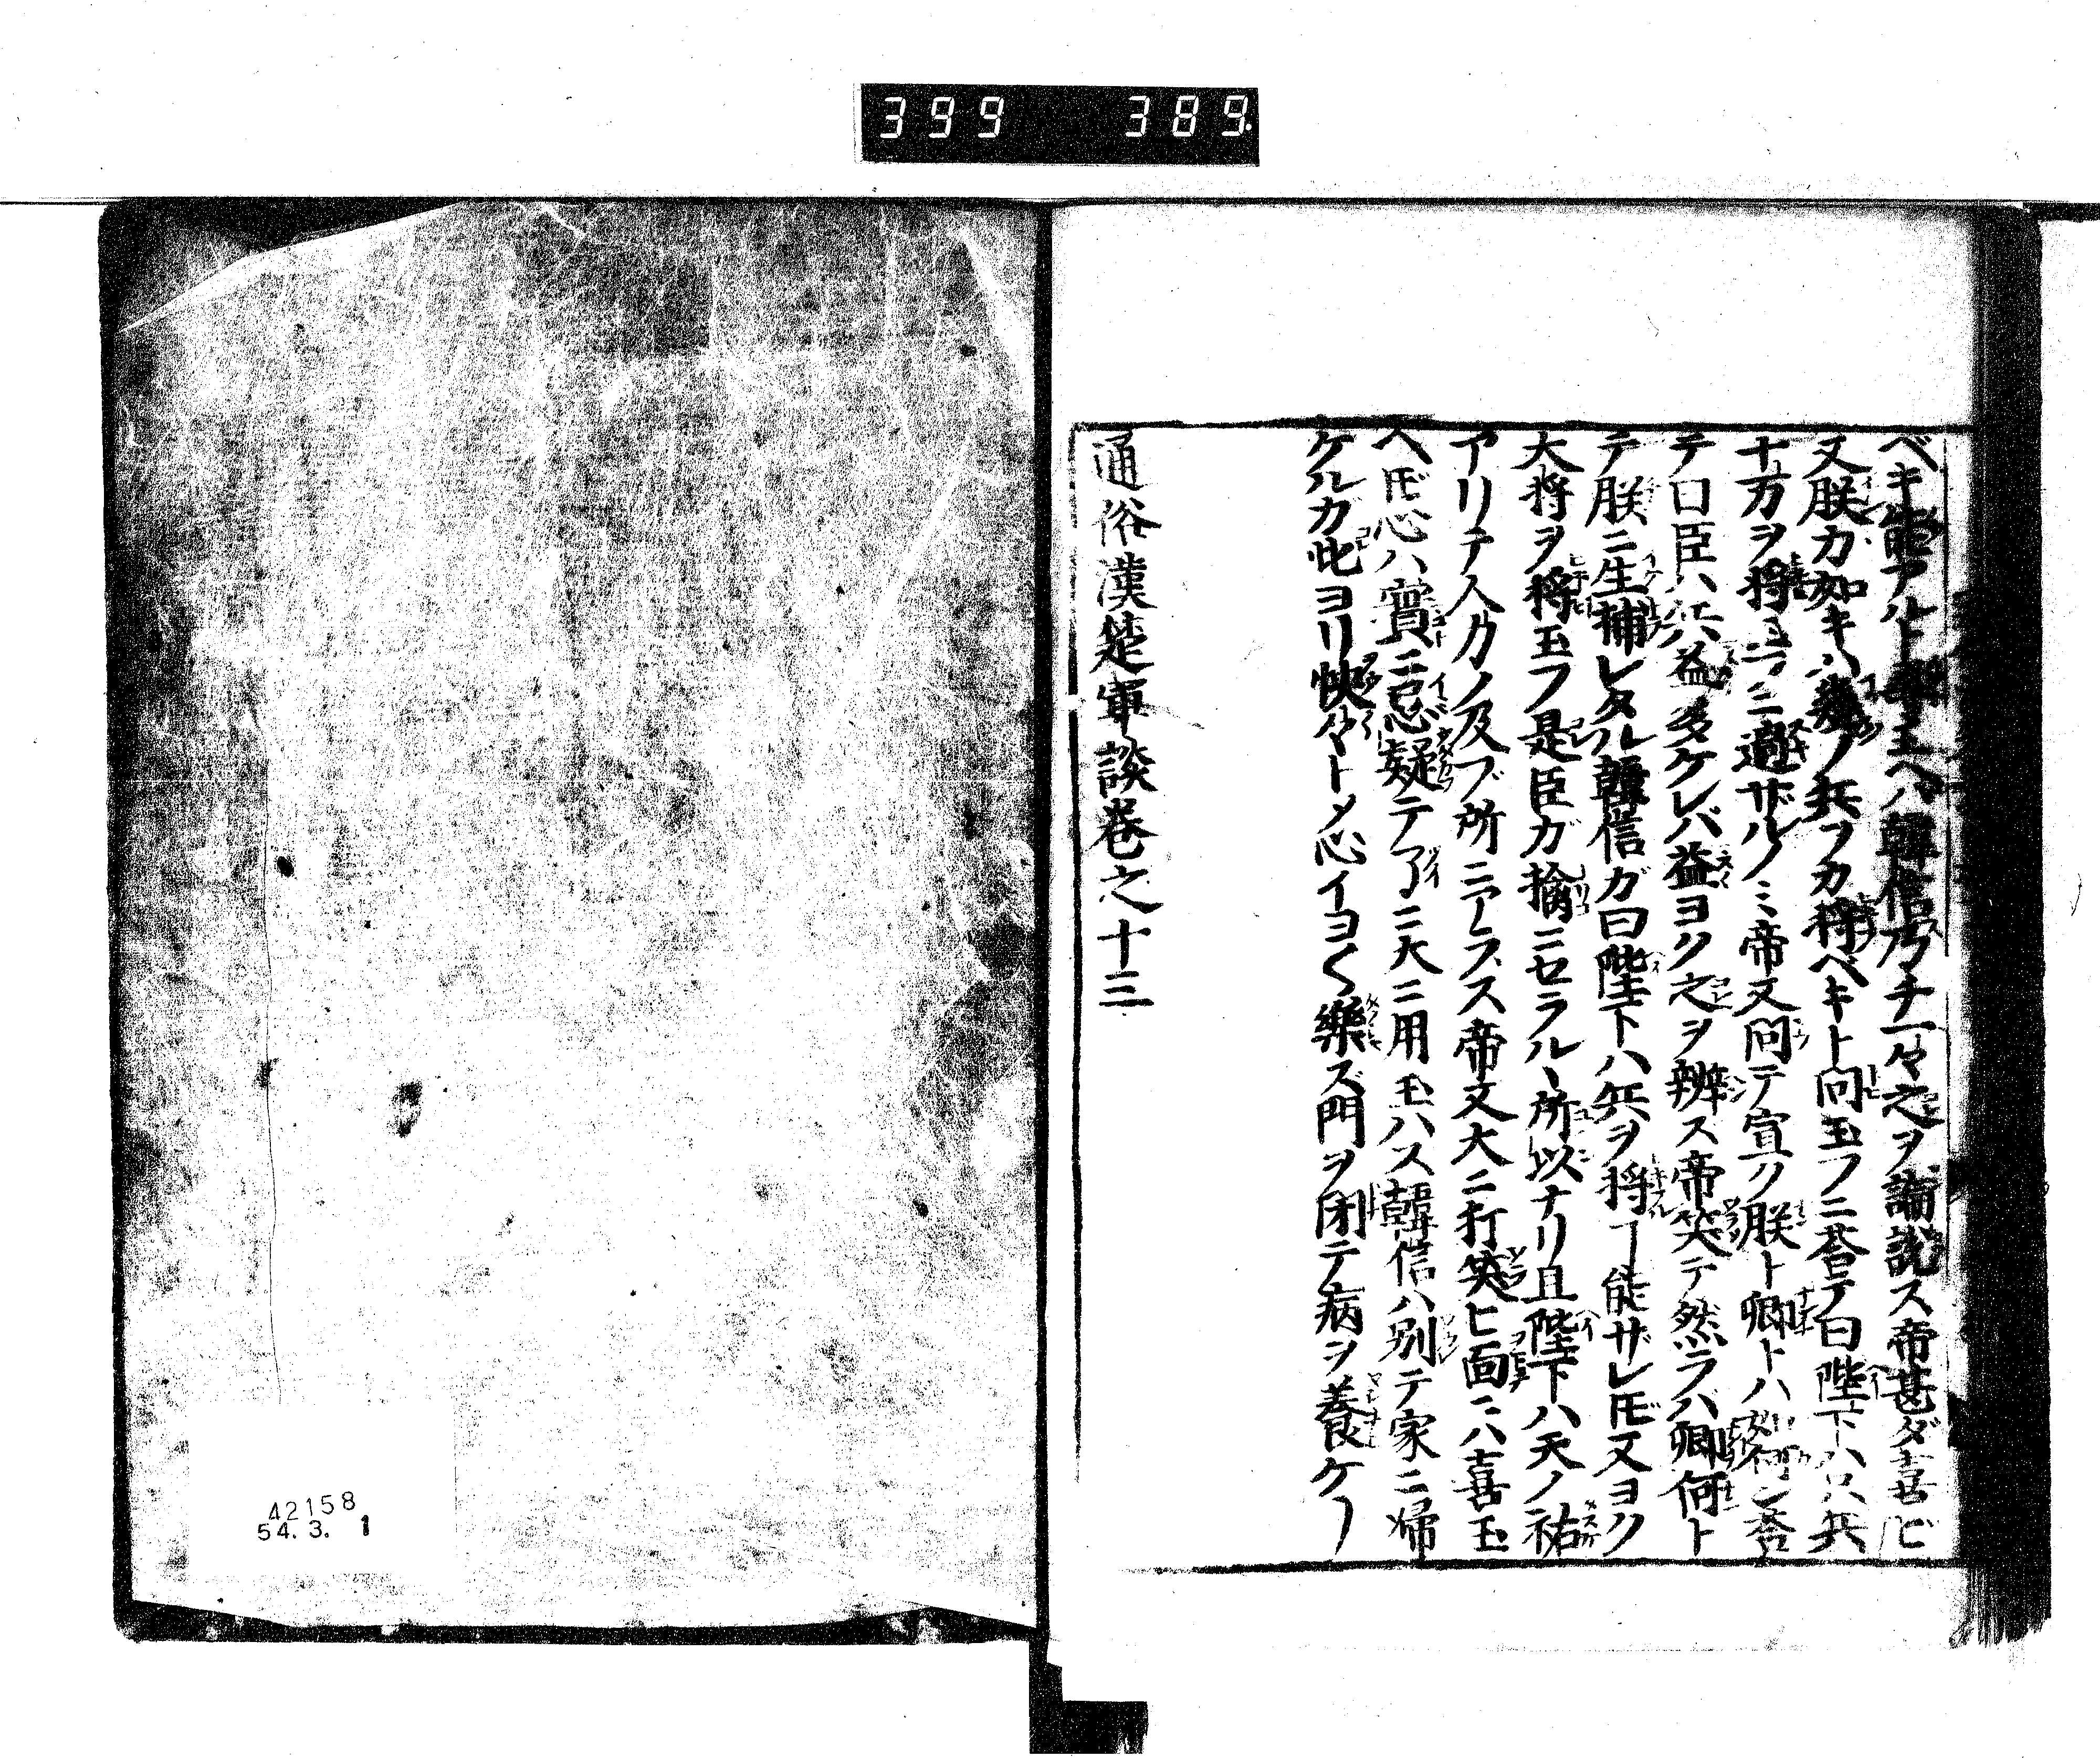 399 389
ベキ能アルト尋玉ヘハ韓信乃チ一々之ヲ論説ス帝甚ダ喜ビ
又朕カ如キハ幾ノ兵ヲカ将ベキト問玉フニ答テ曰陛下ハ只兵
十万ヲ将玉フニ過ザルノミ帝又問テ宣ク朕ト卿トハ如何ン答
テ曰臣ハ兵益多ケレバ益ヨク之ヲ辨ス帝笑テ然ラバ卿何ト
テ朕ニ生捕レタル韓信ガ曰陛下ハ兵ヲ将ヿ能ザレ𪜈又ヨク
大将ヲ将玉フ是臣ガ擒ニセラルヽ所以ナリ且陛下ハ天ノ祐
アリテ人力ノ及ブ所ニアラズ帝又大ニ打笑ヒ面ニハ喜玉
ヘ𪜈心ハ實ニ忌疑テ了ニ大ニ用玉ハス韓信ハ別テ家ニ帰
ケルカ此ヨリ怏々トメ心イヨ〱樂ズ門ヲ閉テ病ヲ養ケリ
通俗漢楚軍談巻之十三
42158
54. 3. 1